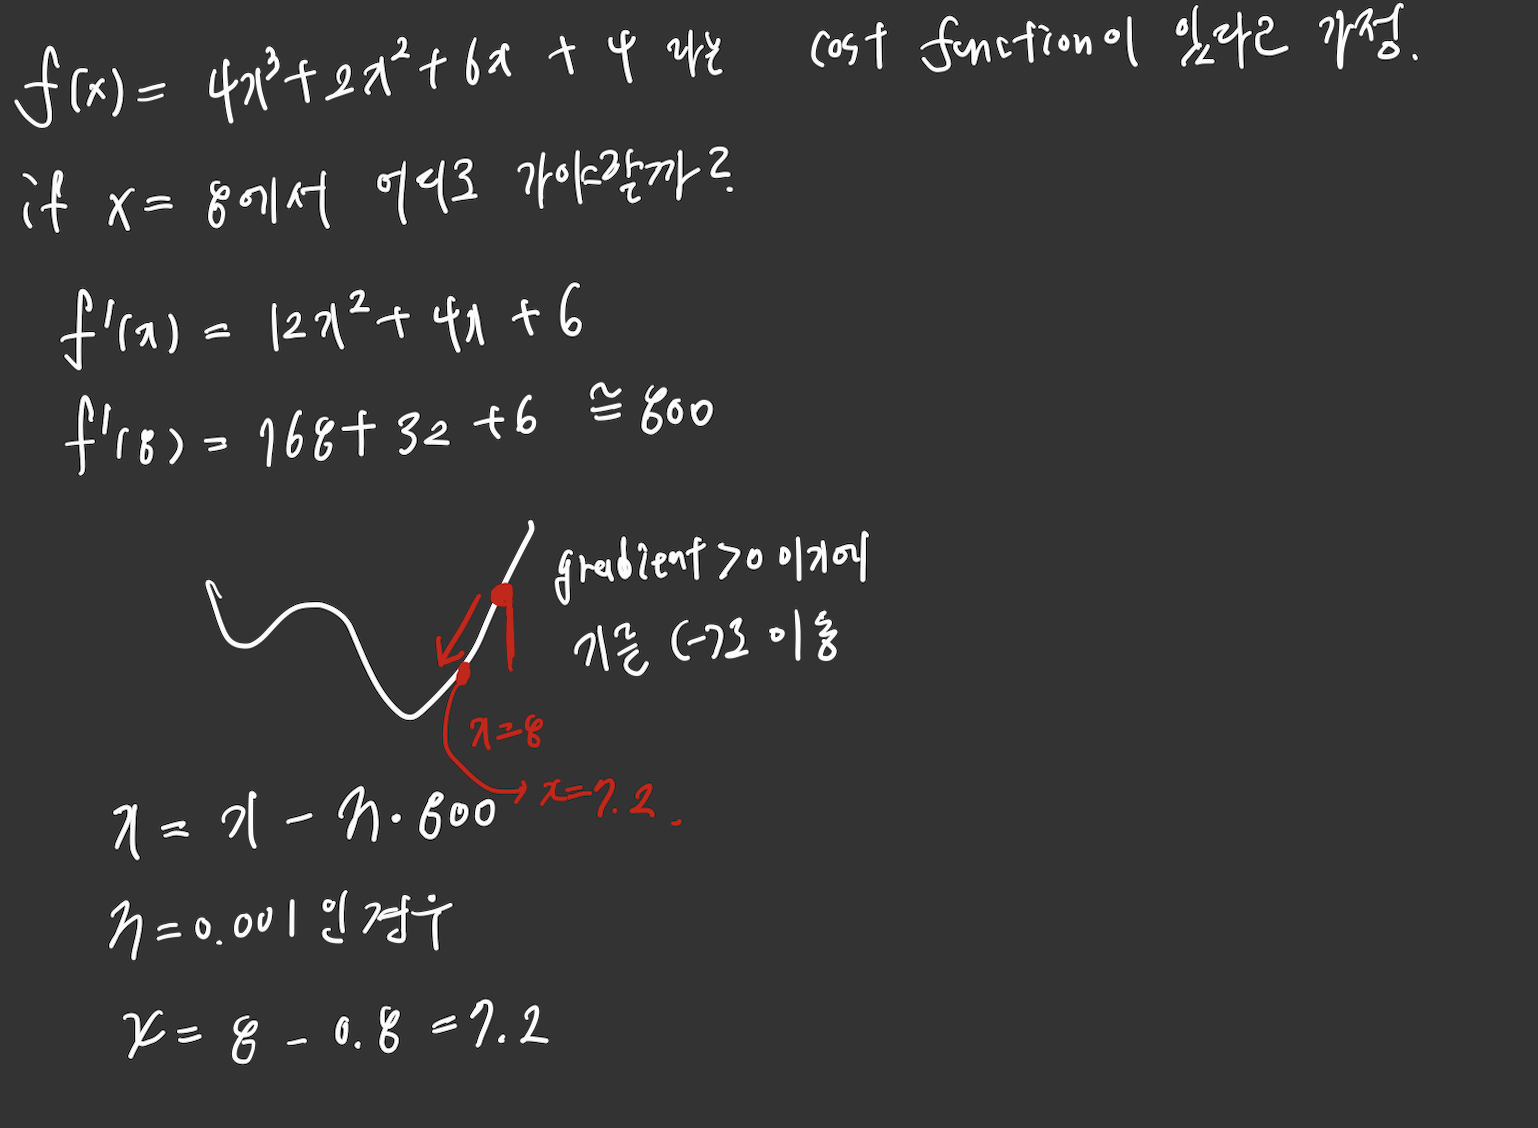 f(x) = 4x³ + 2x² + 6x + 4 라는 cost function이 있다고 가정.
if x = 8에서 어디로 가야할까?
f'(x) = 12x² + 4x + 6
f'(8) = 768 + 32 + 6 ≅ 800
gradient > 0 이기에
기를 (-)로 이동
x=8
x=7.2.
x = x - η·800
η = 0.001 인 경우
x = 8 - 0.8 = 7.2